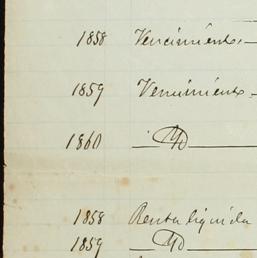 1858 Vencimiento.
1859 Vencimiento
1860 — ID —
1858 Renta liquida
1859 — ID —